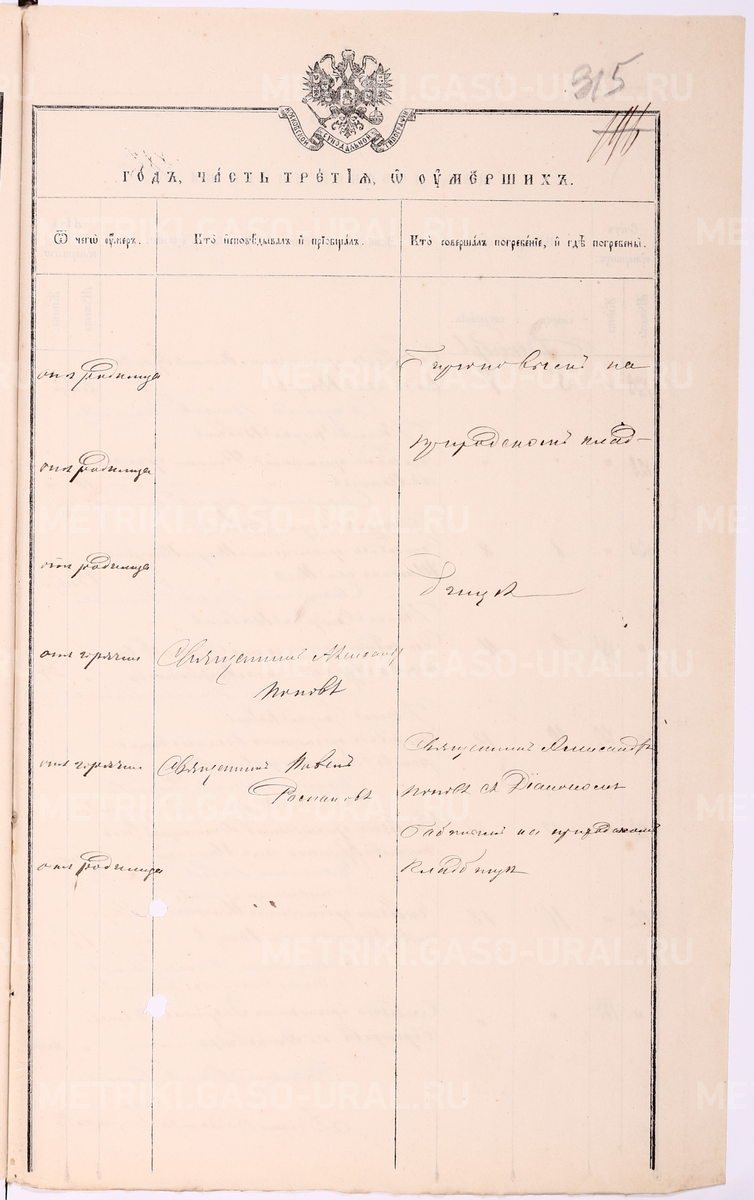 315
МОСКОВСКОЙ СѴНОДАЛЬНОЙ ТИПОГРАФІИ
ГОДЪ, ЧАСТЬ ТРЕТІѦ, Ѿ ОУМЕРШИХЪ.
Ѿ чегѡ оумеръ.
Кто исповѣдывалъ и пріобщалъ.
Кто совершалъ погребеніе, и гдѣ погребены.
отъ родимца
на
отъ родимца
приградскомъ клад-
отъ родимца
бищѣ
отъ горячки
Священникъ Александръ
Поповъ
отъ горячки
Священникъ Павелъ
Священникъ Александръ
Поповъ съ Діакономъ
на приградскомъ
отъ родимца
кладбищѣ
METRIKI.GASO-URAL.RU